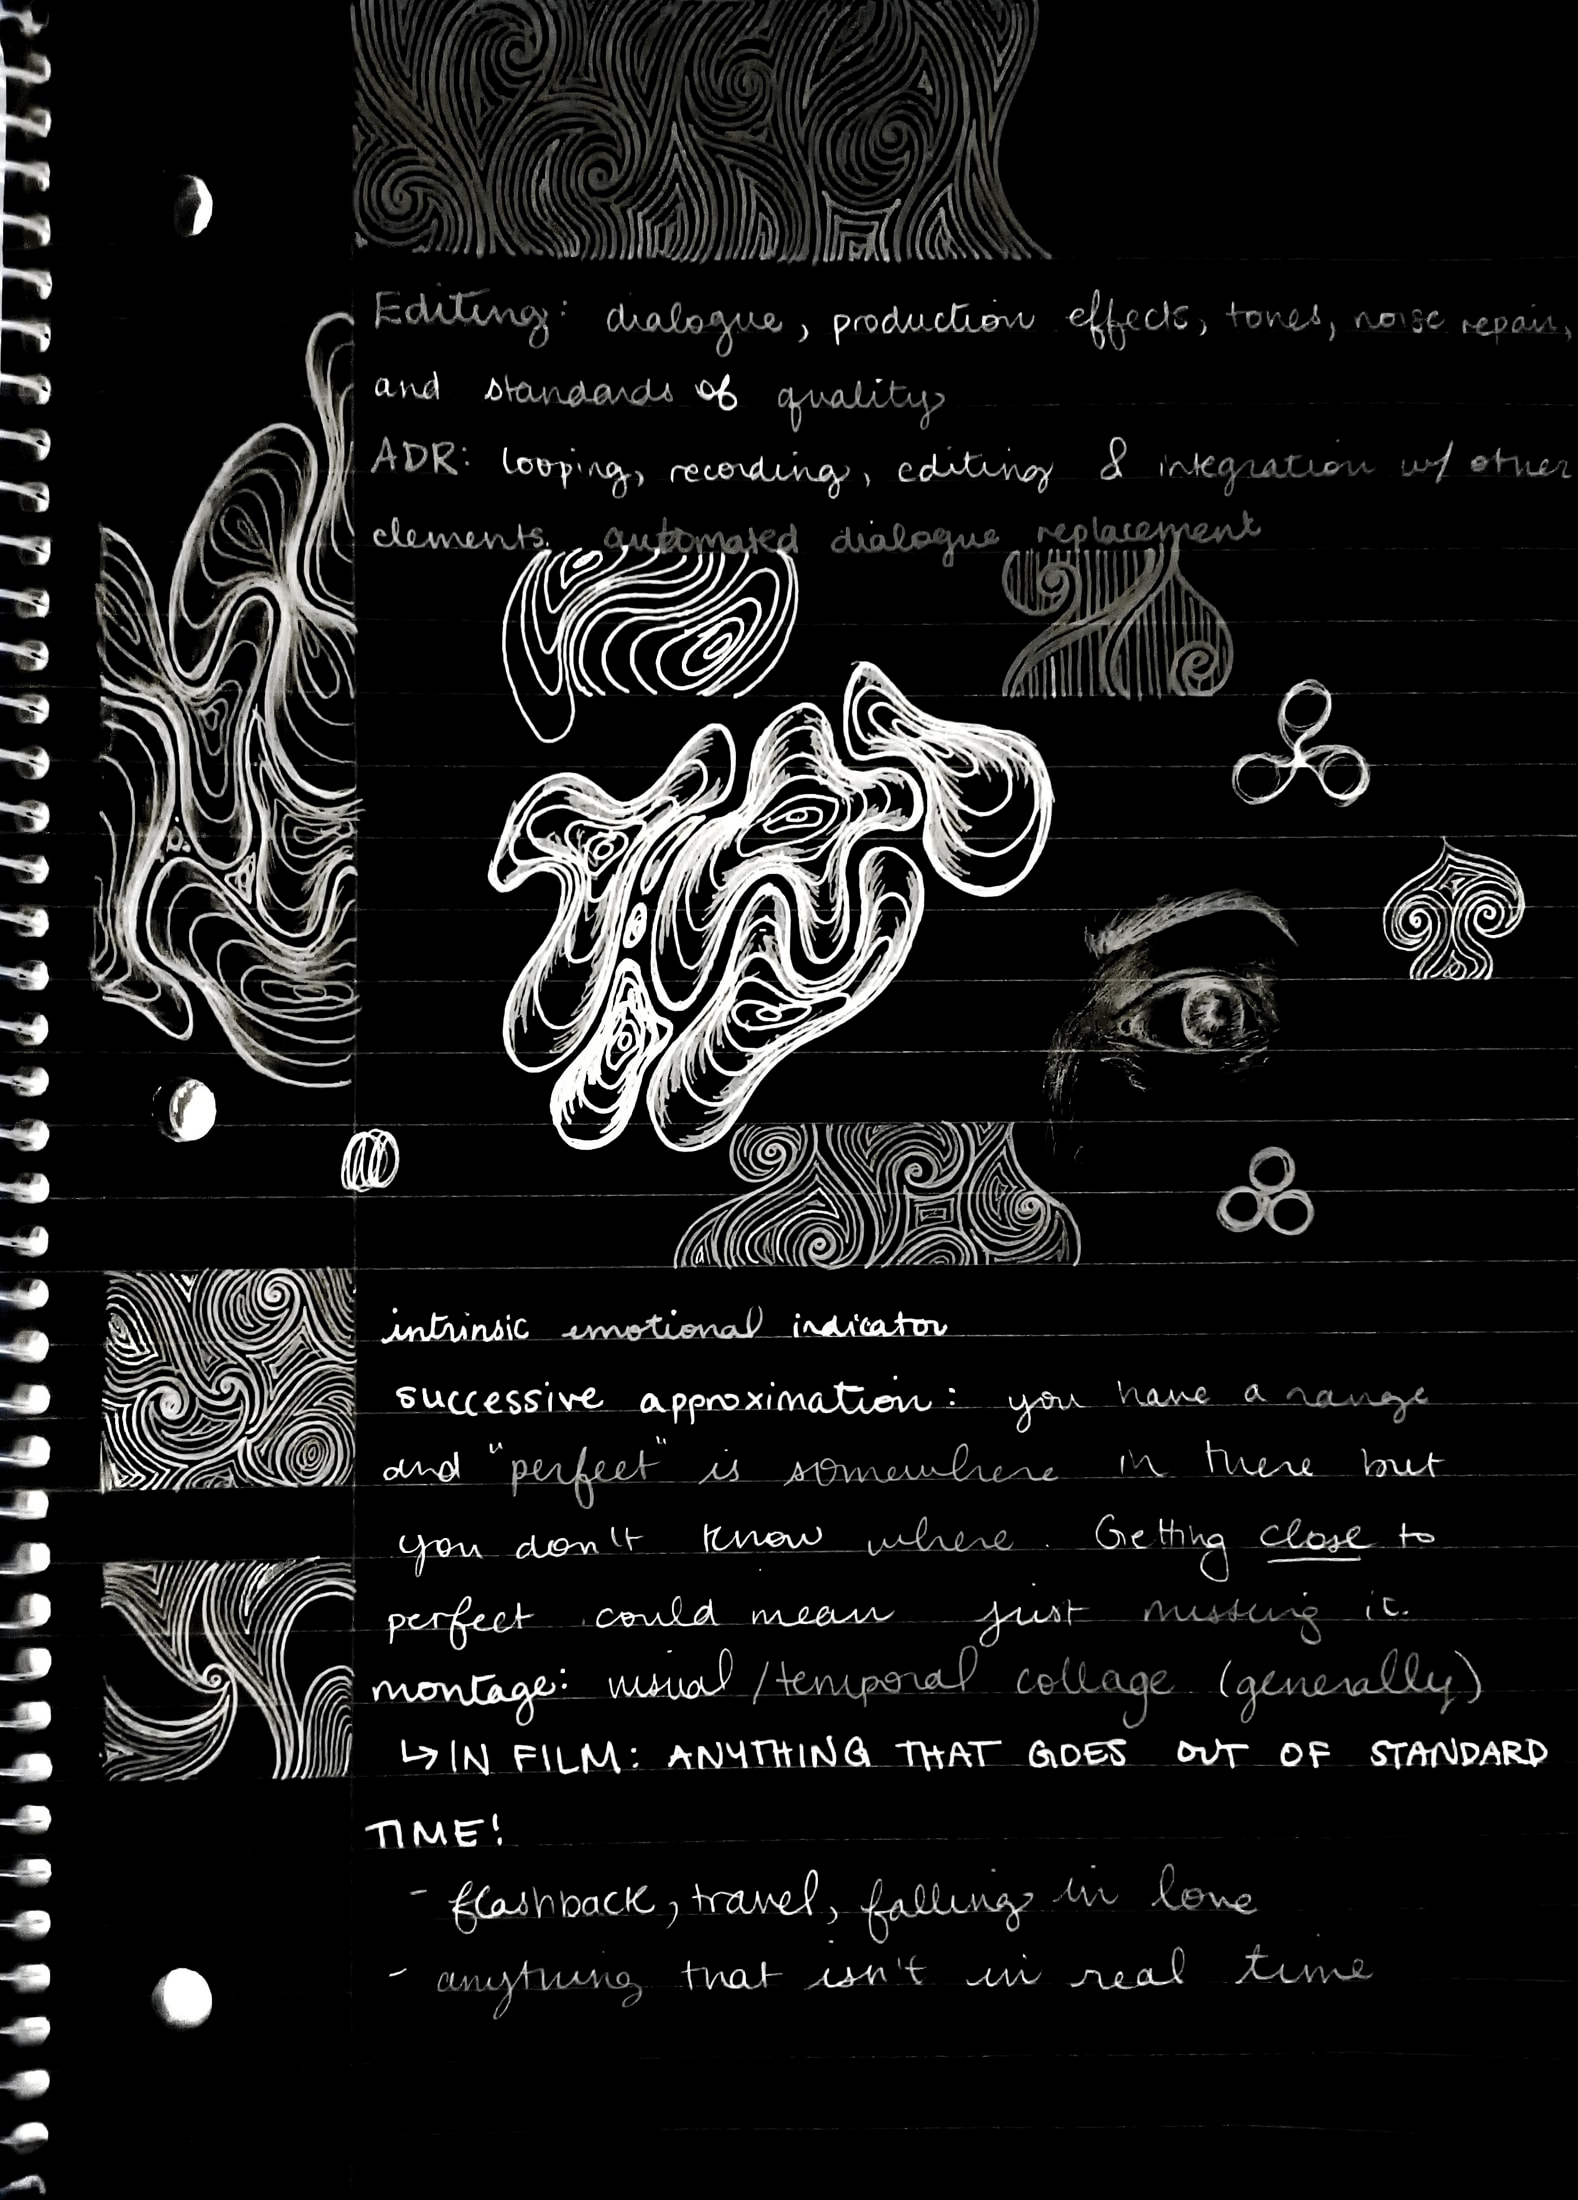 Editing: dialogue, production effects, tones, noise repair,
and standards of quality
ADR: looping, recording, editing & integration w/ other
elements. automated dialogue replacement
intrinsic emotional indicator
successive approximation: you have a range
and "perfect" is somewhere in there but
you don't know where. Getting close to
perfect could mean just missing it.
montage: visual/temporal collage (generally)
↳ IN FILM: ANYTHING THAT GOES OUT OF STANDARD
TIME!
- flashback, travel, falling in love
- anything that isn't in real time